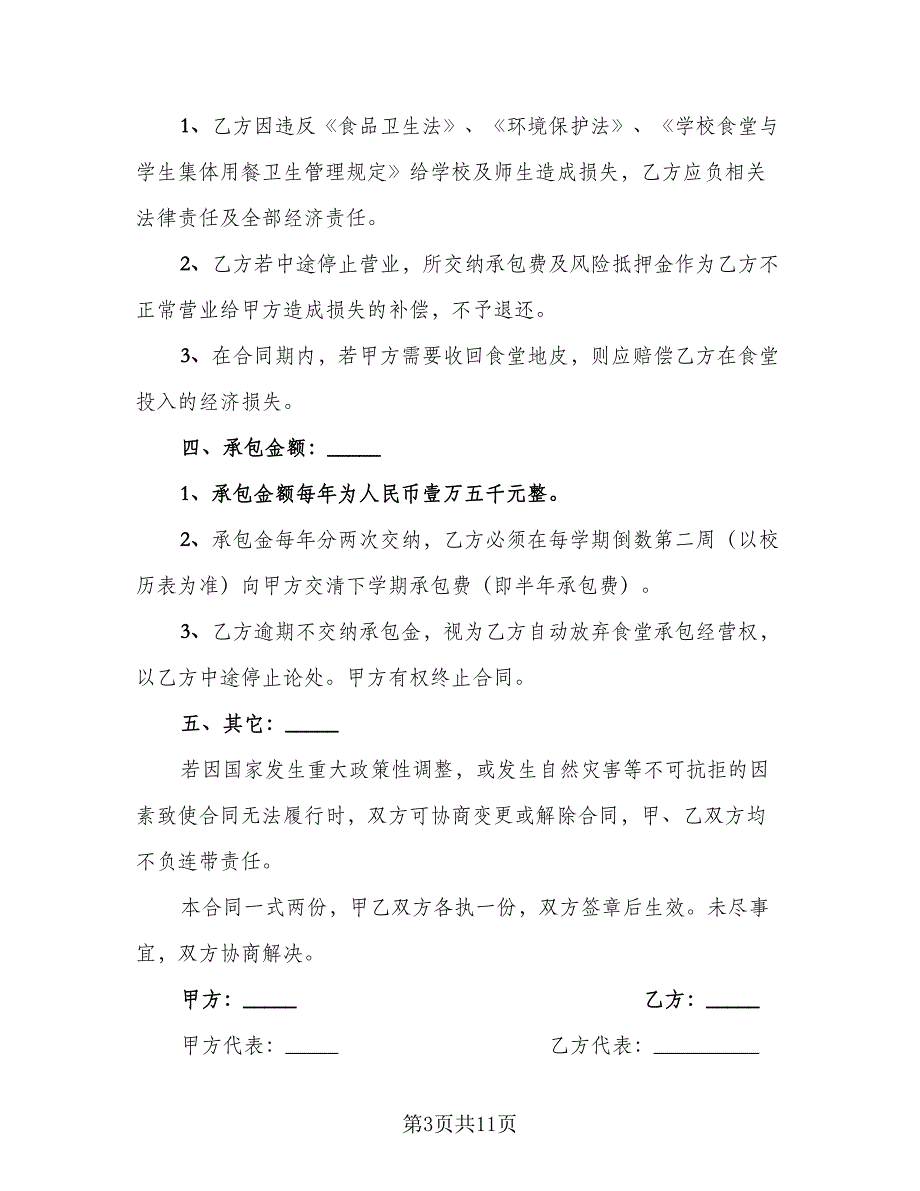 1、乙方因违反《食品卫生法》、《环境保护法》、《学校食堂与
学生集体用餐卫生管理规定》给学校及师生造成损失，乙方应负相关
法律责任及全部经济责任。
2、乙方若中途停止营业，所交纳承包费及风险抵押金作为乙方不
正常营业给甲方造成损失的补偿，不予退还。
3、在合同期内，若甲方需要收回食堂地皮，则应赔偿乙方在食堂
投入的经济损失。
四、承包金额：_____
1、承包金额每年为人民币壹万五千元整。
2、承包金每年分两次交纳，乙方必须在每学期倒数第二周（以校
历表为准）向甲方交清下学期承包费（即半年承包费）。
3、乙方逾期不交纳承包金，视为乙方自动放弃食堂承包经营权，
以乙方中途停止论处。甲方有权终止合同。
五、其它：_____
若因国家发生重大政策性调整，或发生自然灾害等不可抗拒的因
素致使合同无法履行时，双方可协商变更或解除合同，甲、乙双方均
不负连带责任。
本合同一式两份，甲乙双方各执一份，双方签章后生效。未尽事
宜，双方协商解决。
甲方：_____ 乙方：_____
甲方代表：_____ 乙方代表：__________
第3页共11页